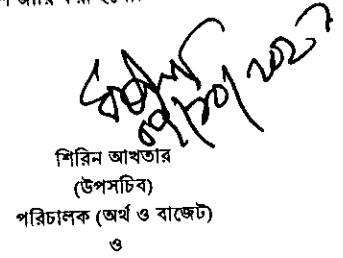 জারি করা হলো।
শিরিন আখতার
(উপসচিব)
পরিচালক (অর্থ ও বাজেট)
ও